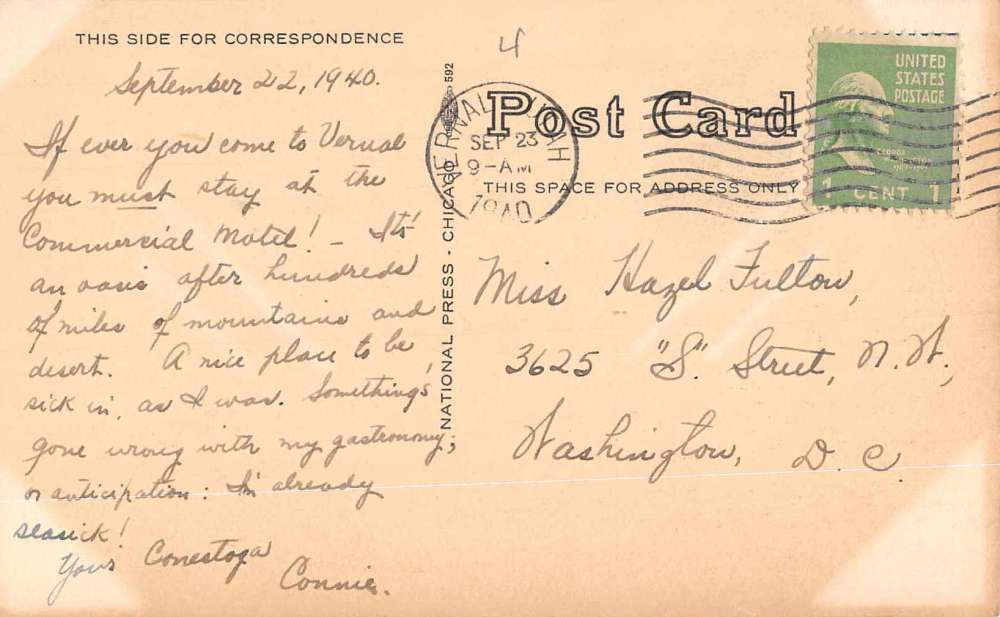 THIS SIDE FOR CORRESPONDENCE
September 22, 1940.
If ever you come to Vernal
you must stay at the
Commercial Motel! - It's
an oasis after hundreds
of miles of mountains and
desert. A nice place to be
sick in, as I was. Something's
gone wrong with my gastronomy,
or anticipation: I'm already
seasick!
Your Conestoga
Connie.
NATIONAL PRESS - CHICAGO
592
4
Post Card
THIS SPACE FOR ADDRESS ONLY
VERNAL UTAH
SEP 23
9-AM
1940
UNITED
STATES
POSTAGE
GEORGE
WASHINGTON
1 CENT 1
Miss Hazel Fulton,
3625 "S" Street, N.W.,
Washington, D. C